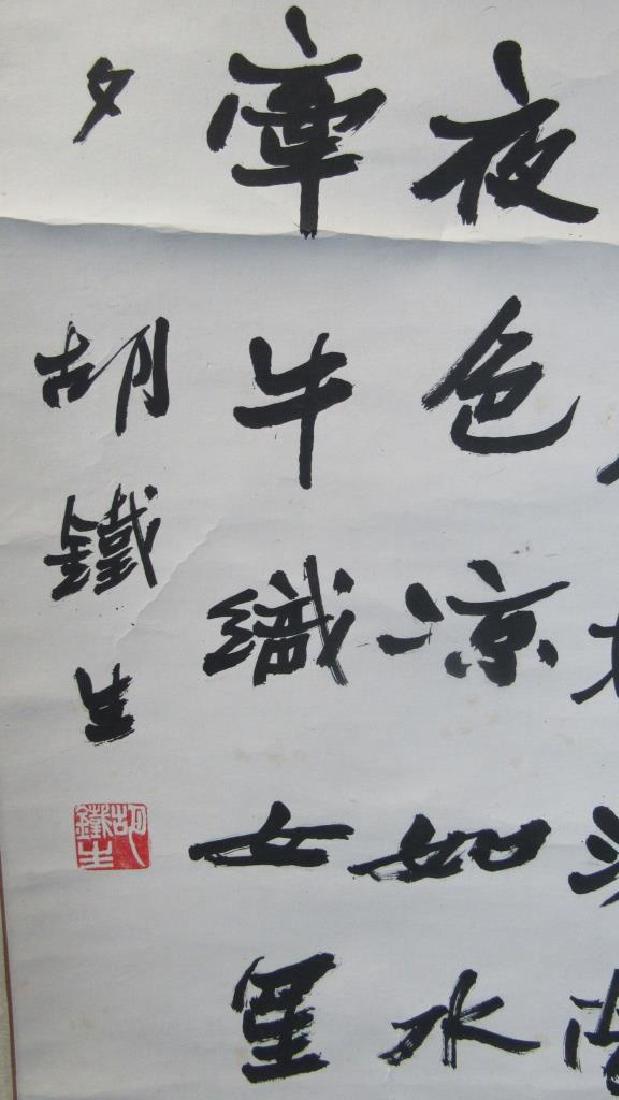 夜色凉如水
牽牛織女星
夕 胡鐵生
胡鐵生